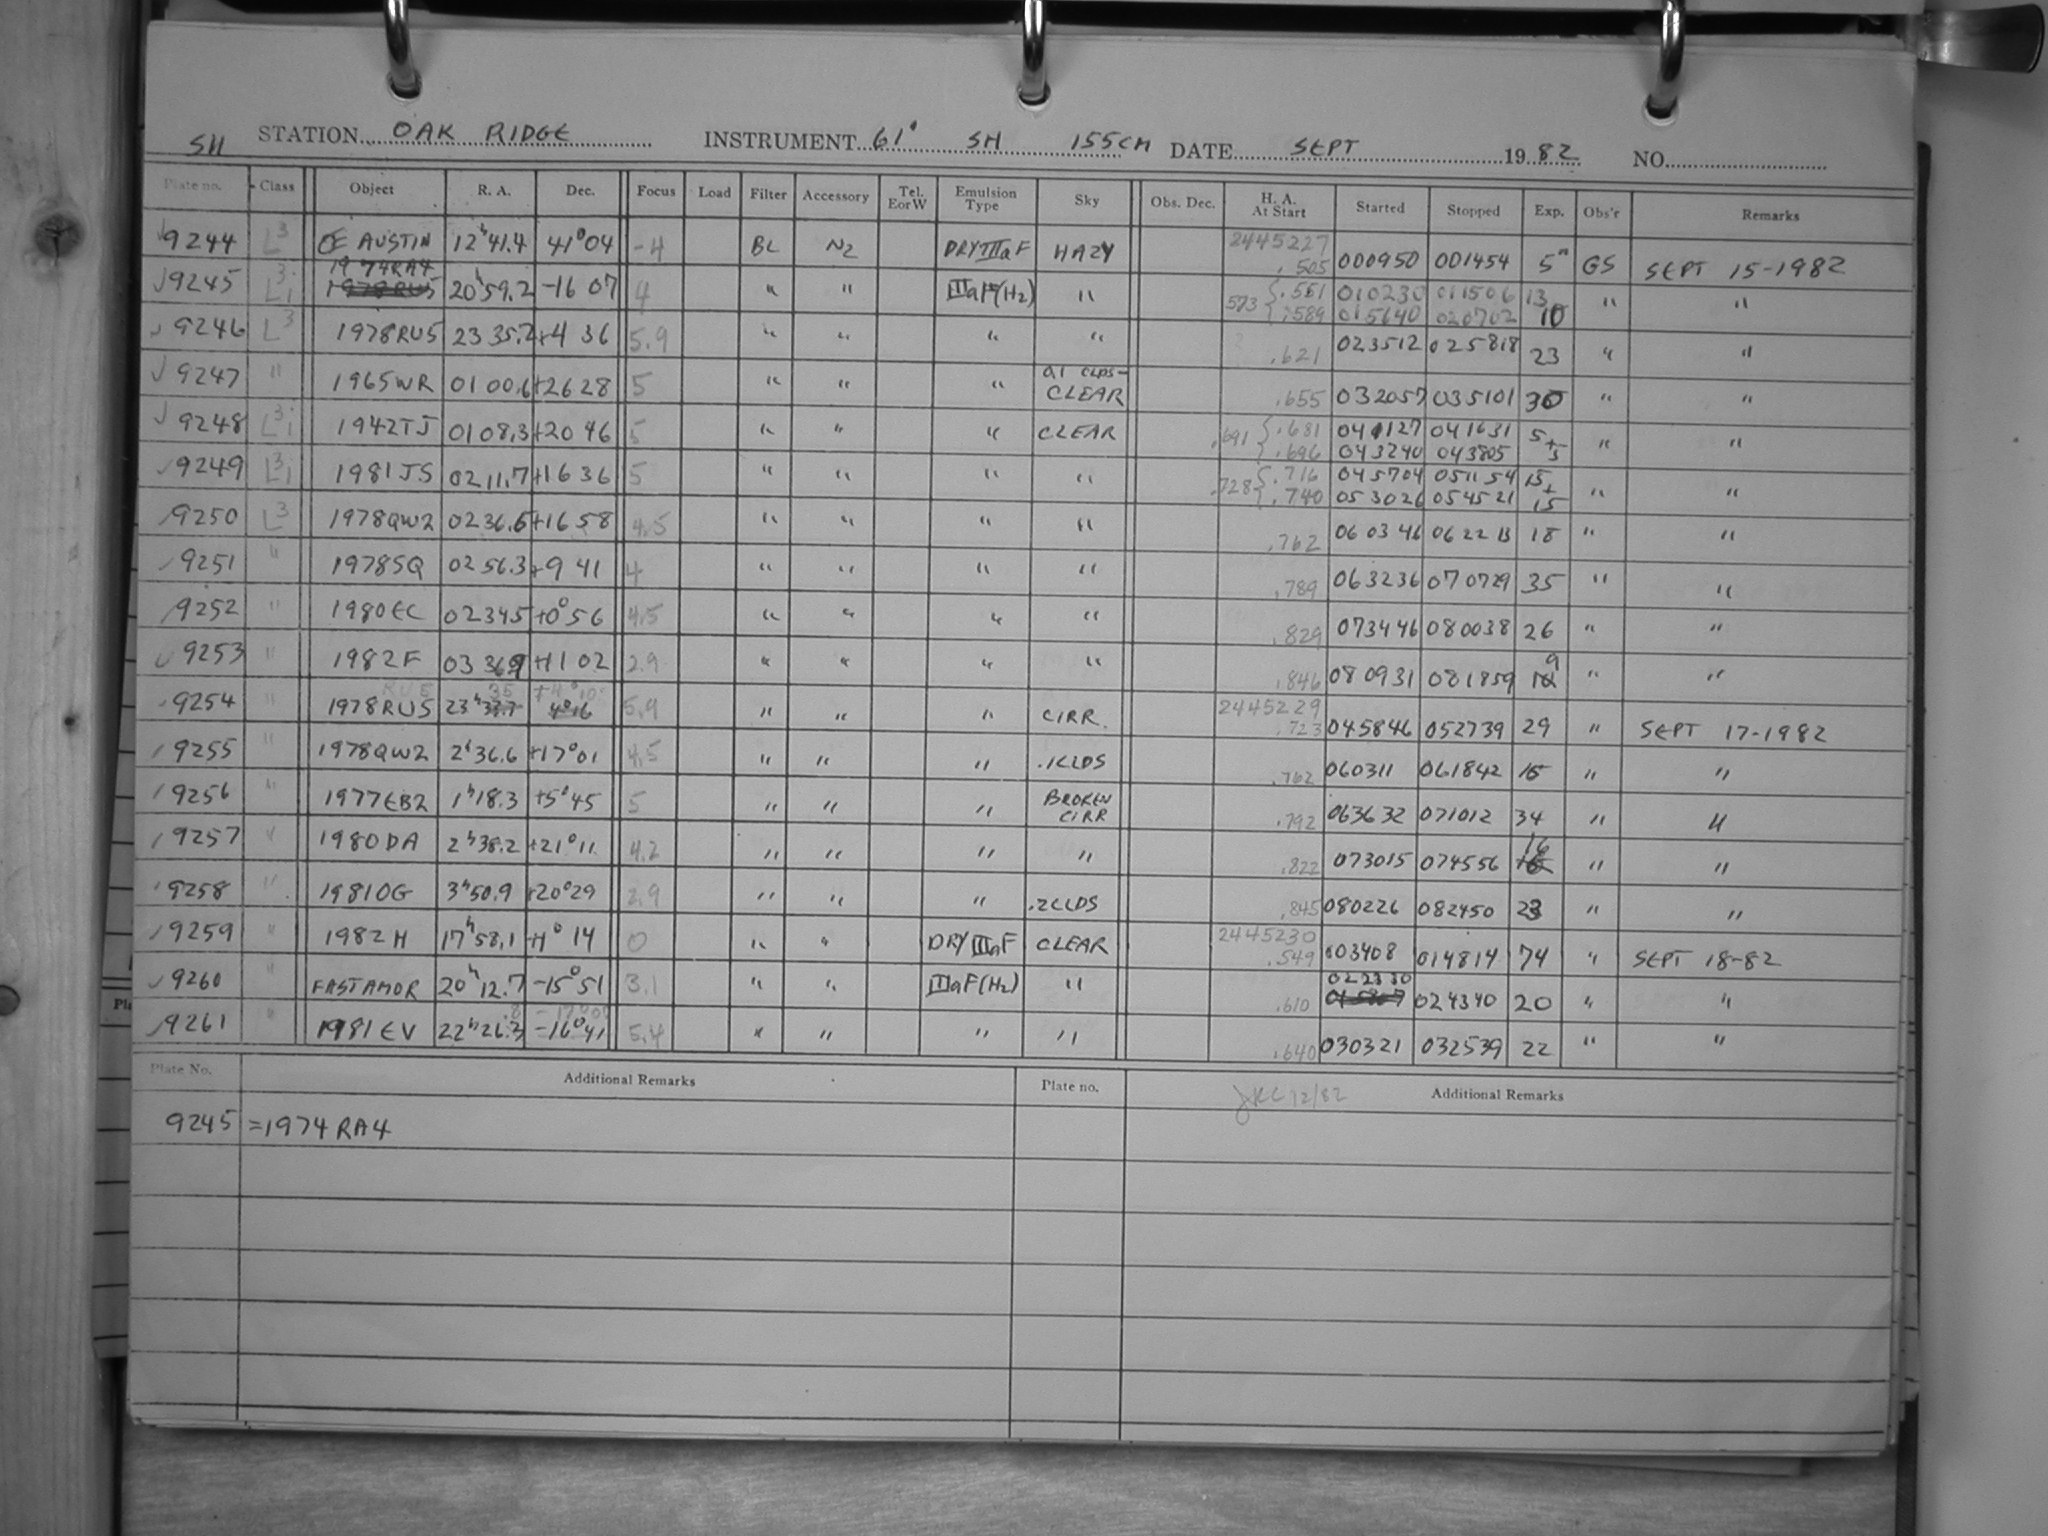 SH STATION OAK RIDGE INSTRUMENT 61" SH 155CM DATE SEPT 1982 NO.
Plate no. Class Object R. A. Dec. Focus Load Filter Accessory Tel. E or W Emulsion Type Sky Obs. Dec. H. A. At Start Started Stopped Exp. Obs'r Remarks
9244 L3 AUSTIN 12h41.4 41°04 -4 BL N2 DRY IIIaF HAZY 2445227 .505 000950 001454 5m GS SEPT 15-1982
9245 L3 1974RA4 20h59.2 -16 07 4 " " IIIaF(H2) " .573 { .551 010230 011506 13 " "
.589 015640 020702 10
9246 L3 1978RU5 23 35.2 +4 36 5.9 " " " " .621 023512 025818 23 " "
9247 " 1965WR 01 00.6 +26 28 5 " " " CLEAR .655 032057 035101 30 " "
9248 L3 1942TJ 01 08.3 +20 46 5 " " " CLEAR .691 { .681 041127 041631 5+ " "
.696 043240 043805 5
9249 L3 1981JS 02 11.7 +16 36 5 " " " " .728 { .716 045704 051154 15+ " "
.740 053026 054521 15
9250 L3 1978QW2 02 36.6 +16 58 4.5 " " " " .762 060346 062213 18 " "
9251 " 1978SQ 02 56.3 +9 41 4 " " " " .789 063236 070729 35 " "
9252 " 1980EC 02 34.5 +0°56 4.5 " " " " .829 073446 080038 26 " "
9253 " 1982F 03 36.9 +11 02 2.9 " " " " .846 080931 081859 9 " "
9254 " 1978RU5 23h 35 5.9 " " " CIRR. 2445229 .723 045846 052739 29 " SEPT 17-1982
9255 " 1978QW2 2h36.6 +17°01 4.5 " " " .1CLDS .762 060311 061842 15 " "
9256 " 1977EB2 1h18.3 +5°45 5 " " " BROKEN CIRR .792 063632 071012 34 " "
9257 " 1980DA 2h38.2 +21°11 4.2 " " " " .822 073015 074556 16 " "
9258 " 1981OG 3h50.9 +20°29 2.9 " " " .2CLDS .845 080226 082450 23 " "
9259 " 1982H 17h58.1 14 0 " " DRY IIIaF CLEAR 2445230 .549 003408 014814 74 " SEPT 18-82
9260 " FAST AMOR 20h12.7 -15°51 3.1 " " IIIaF(H2) " .610 022330 024340 20 " "
9261 " 1981EV 22h26.3 -16°41 5.4 " " " " .640 030321 032539 22 " "
Plate No. Additional Remarks Plate no. JRC 12/82 Additional Remarks
9245 =1974RA4